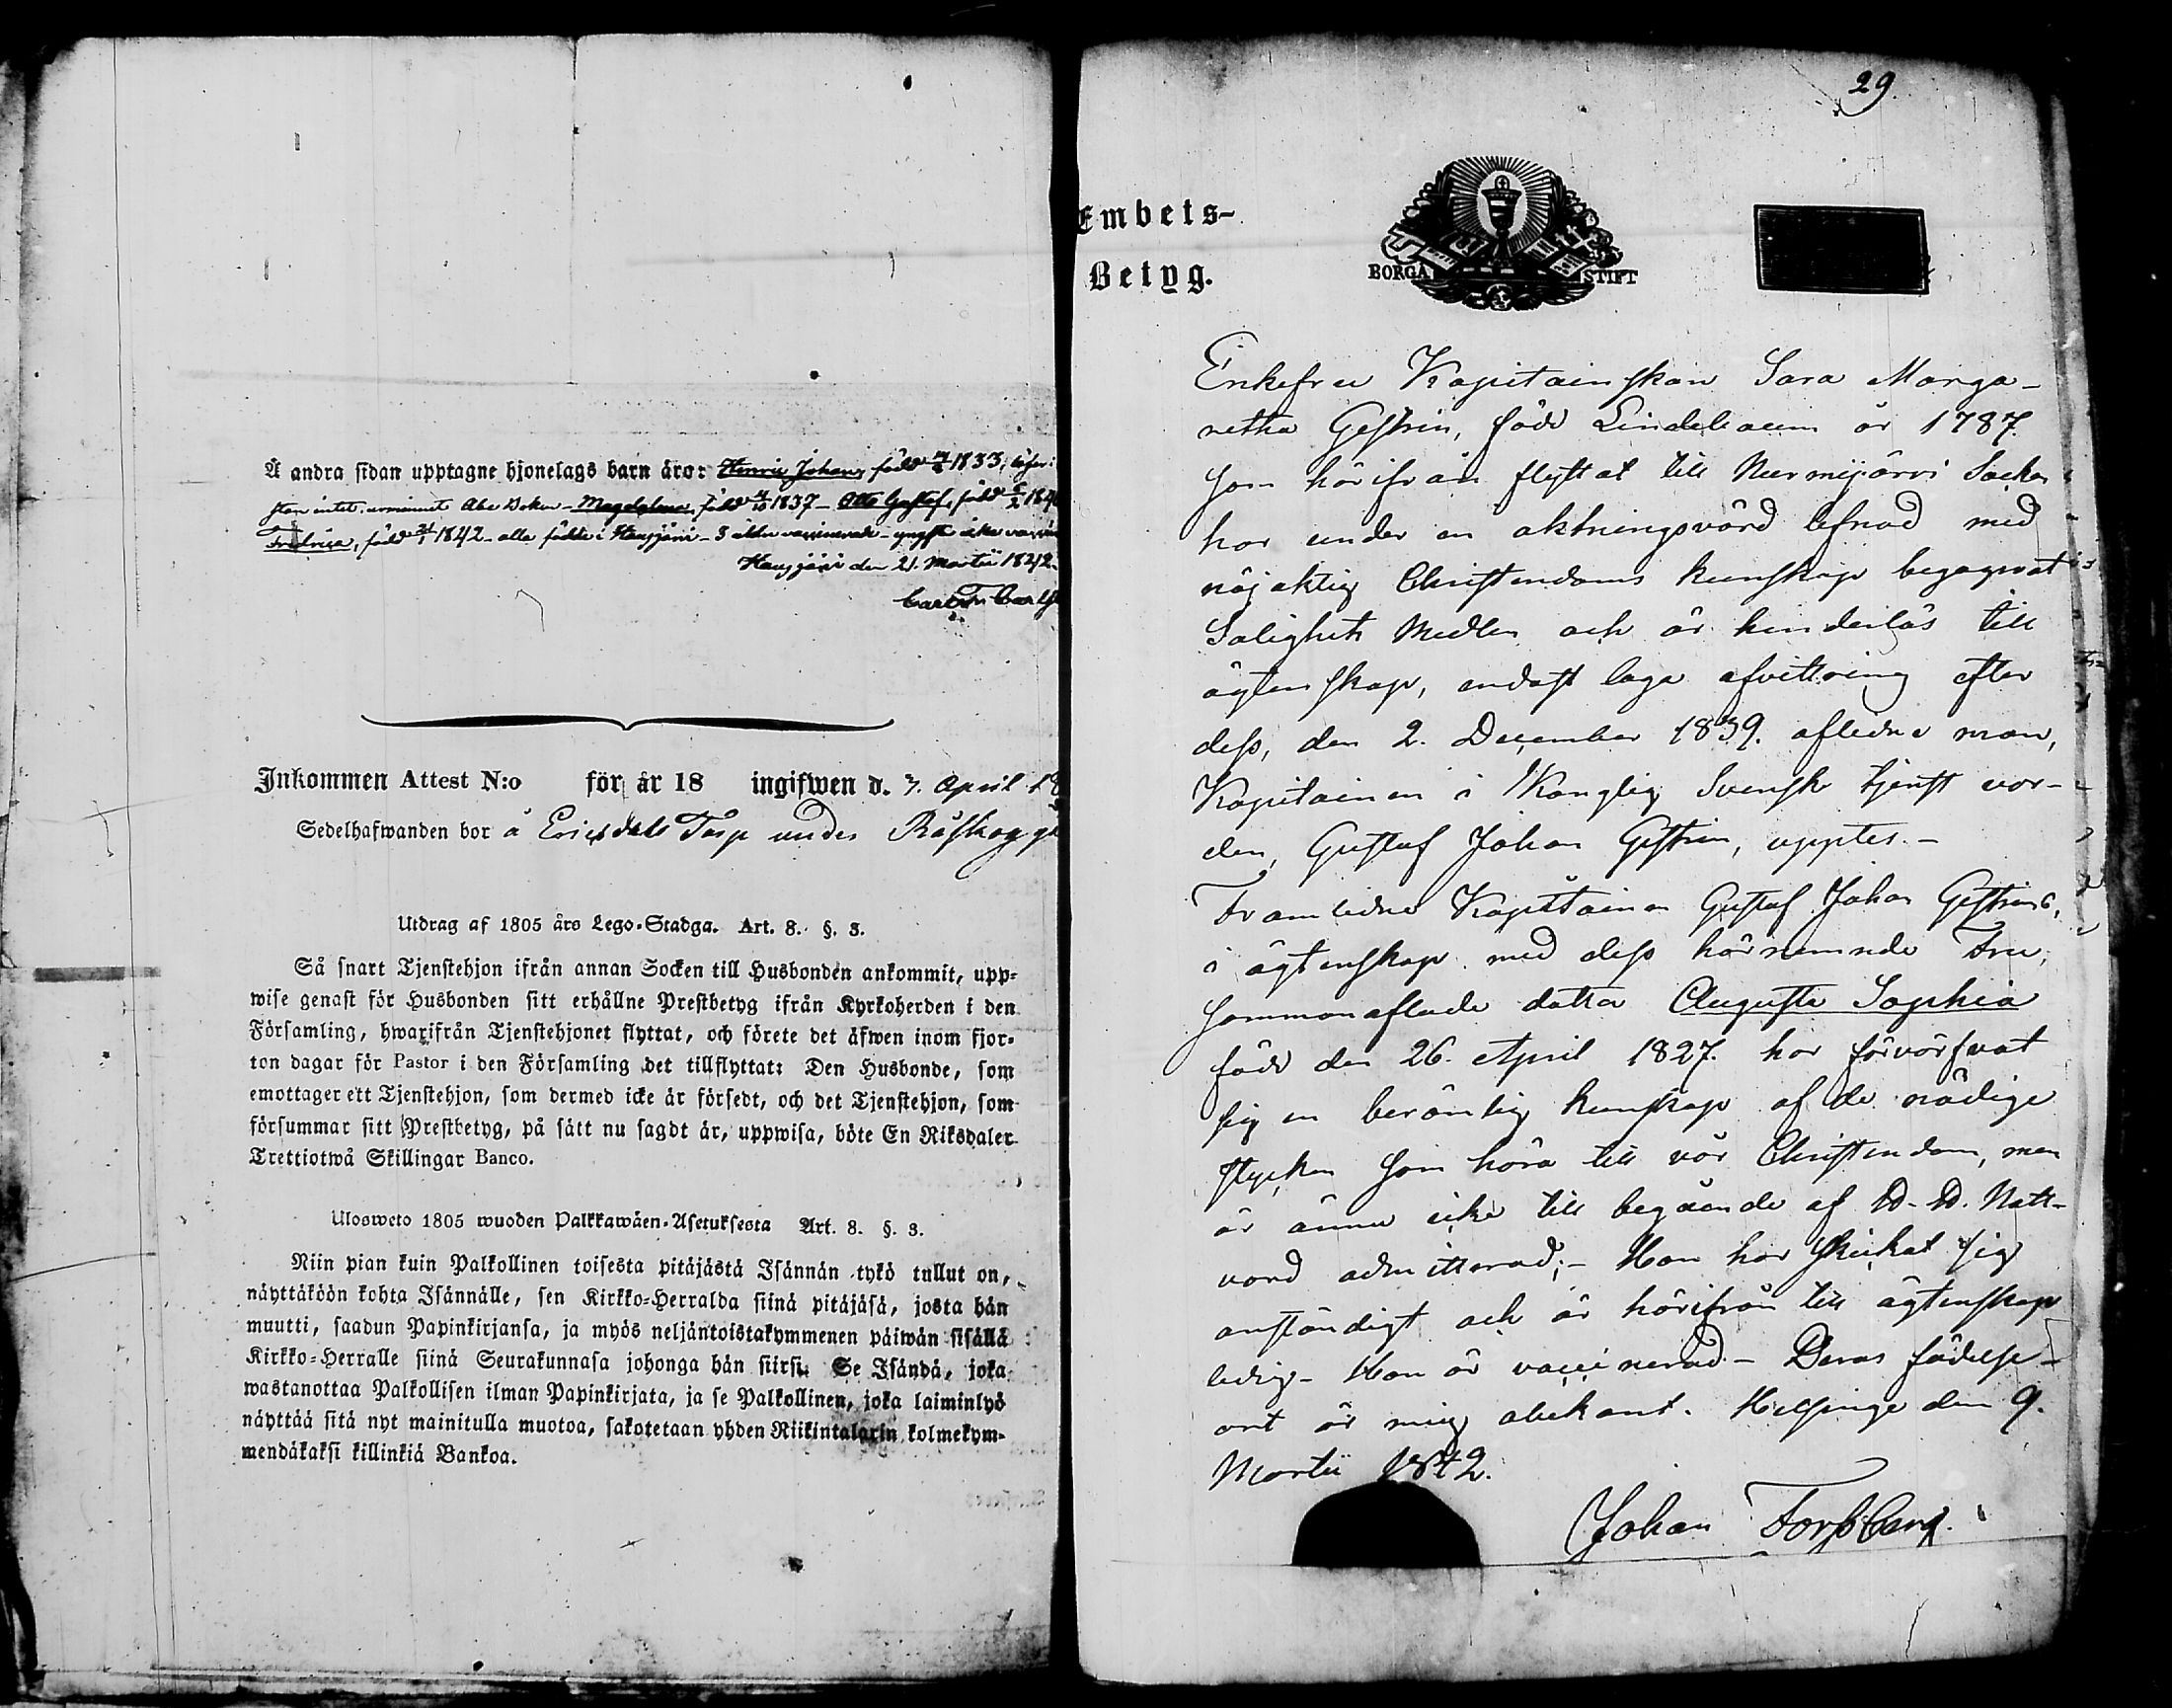 Å andra sidan upptagne hjonelags barn äro: Henric Johan, född 1833;
Abc Boken - Magdalena, född 1837 - Otto Gustaf, född
Fredrica, född 1842 - alla födde i Hausjärvi - 3 äldre vaccinerade - yngste icke
Hausjärvi den 21. Martii 1842.
Inkommen Attest N:o för år 18 ingifwen d. 7. April 18
Sedelhafwanden bor å Ericsdals Torp under Råskog
Utdrag af 1805 års Lego-Stadga. Art. 8. §. 3.
Så snart Tjenstehjon ifrån annan Socken till Husbonden ankommit, upp-
wise genast för Husbonden sitt erhållne Prestbetyg ifrån Kyrkoherden i den
Församling, hwarifrån Tjenstehjonet flyttat, och förete det äfwen inom fjor-
ton dagar för Pastor i den Församling det tillflyttat: Den Husbonde, som
emottager ett Tjenstehjon, som dermed icke är försedt, och det Tjenstehjon, som
försummar sitt Prestbetyg, på sätt nu sagdt är, uppwisa, böte En Riksdaler
Trettiotwå Skillingar Banco.
Ulosweto 1805 wuoden Palkkawäen-Asetuksesta Art. 8. §. 3.
Niin pian kuin Palkollinen toisesta pitäjästä Isännän tykö tullut on,
näyttäköön kohta Isännälle, sen Kirkko-Herralda siinä pitäjäsä, josta hän
muutti, saadun Papinkirjansa, ja myös neljäntoistakymmenen päiwän sisällä
Kirkko-Herralle siinä Seurakunnasa johonga hän siirsi. Se Isändä, joka
wastanottaa Palkollisen ilman Papinkirjata, ja se Palkollinen, joka laiminlyö
näyttää sitä nyt mainitulla muotoa, sakotetaan yhden Riikintalarin kolmekym-
mendäkaksi killinkiä Bankoa.
29.
Embets-
Betyg.
BORGÅ STIFT
Enkefru Kapitainskan Sara Marga-
retha Gestrin, född Lindebaum år 1787.
som härifrån flyttat till Nurmijärvi Socken
har under en aktningsvärd lefnad med
nöjaktig Christendoms kunskap begagnat
Salighets Medlen och är hinderlös till
ägtenskap, endast laga afvittring efter
dess, den 2. December 1839. aflidne man,
Kapitainen i Kunglig Svensk tjenst vor-
den, Gustaf Johan Gestrin, upptes. -
Framledne Kapitainen Gustaf Johan Gestrins,
i ägtenskap med dess härnemnde Fru,
sammanaflade dotter Augusta Sophia
född den 26. April 1827. har förvärfvat
sig en berömlig kunskap af de nödige
stycken som höra till vår Christendom, men
är ännu icke till begående af D. D. Natt-
vard admitterad; - Hon har skickat sig
anständigt och är härifrån till ägtenskap
ledig - Hon är vaccinerad. - Deras födelse-
ort är mig obekant. Helsinge den 9.
Martii 1842.
Johan Forssberg.